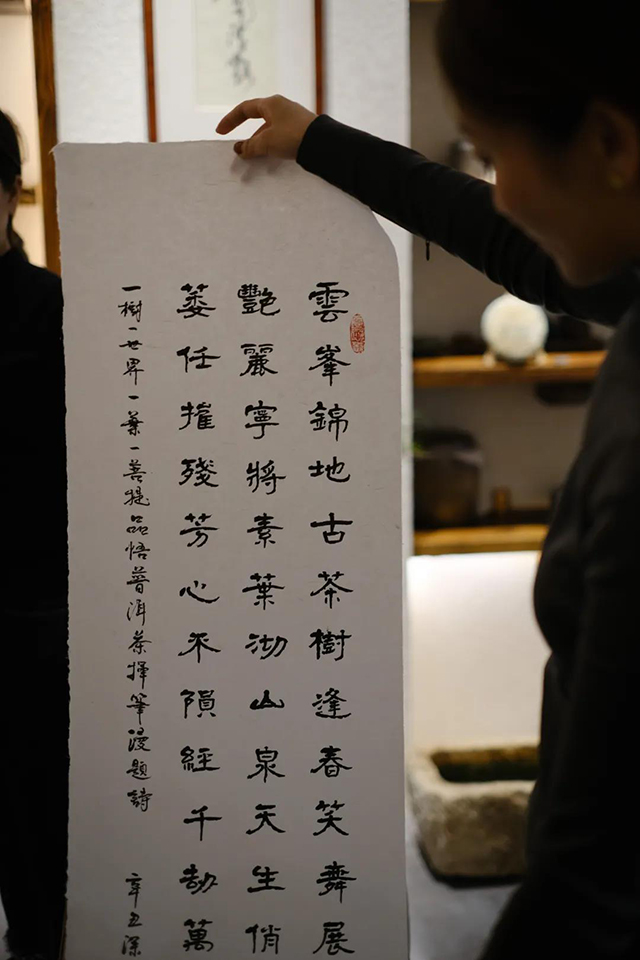 雲峯錦地古茶樹逢春笑舞展
豔麗寧將素葉沏山泉天生俏
萎任摧殘芳心不隕經千劫萬
一樹一世界一葉一菩提品悟普洱茶揮筆漫題詩
辛丑深